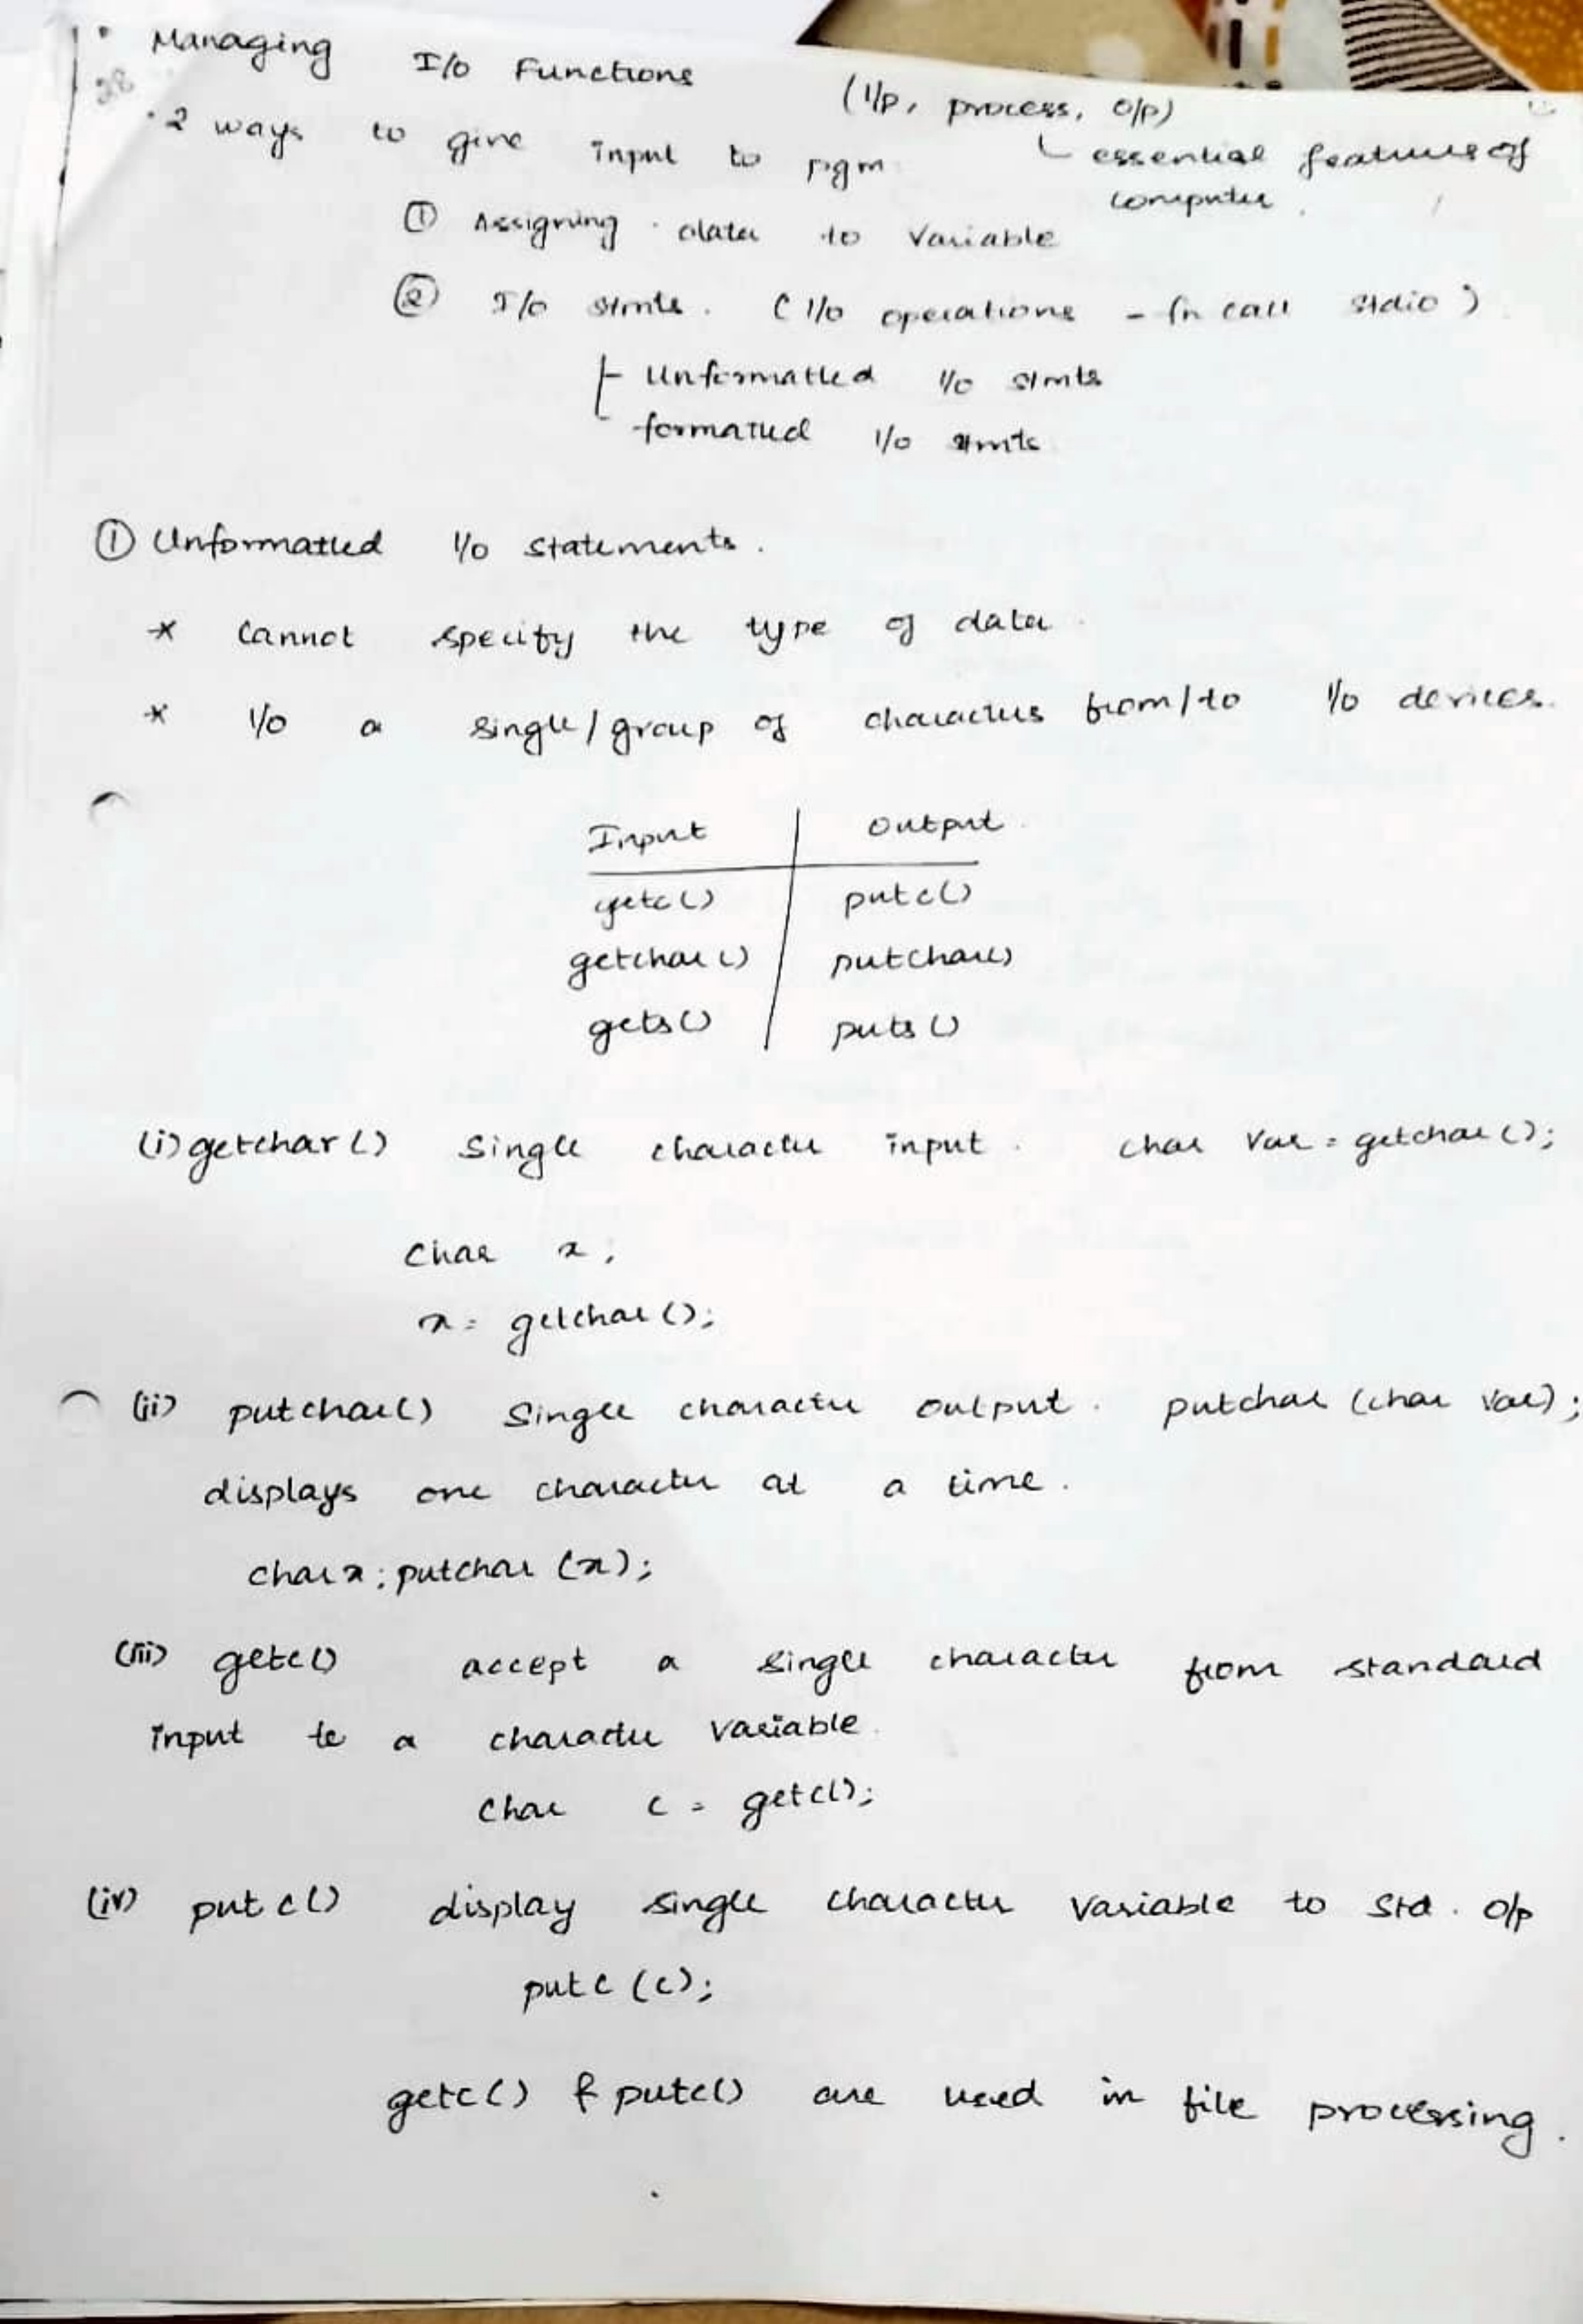 Managing I/o Functions (I/p, process, o/p)
28
· 2 ways to give input to pgm essential features of
computer.
① Assigning data to variable
② I/o stmts. (I/o operations - fn call stdio)
Unformatted I/o stmts
formatted I/o stmts
① Unformatted I/o statements.
* Cannot specify the type of data.
* I/o a single/group of characters from/to I/o devices.
Input Output
getc() putc()
getchar() putchar()
gets() puts()
(i) getchar() Single character input. char var = getchar();
char x;
x = getchar();
(ii) putchar() Single character output. putchar (char var);
displays one character at a time.
char x; putchar (x);
(iii) getc() accept a single character from standard
input to a character variable.
Char c = getc();
(iv) putc() display single character variable to std. o/p
putc (c);
getc() & putc() are used in file processing.